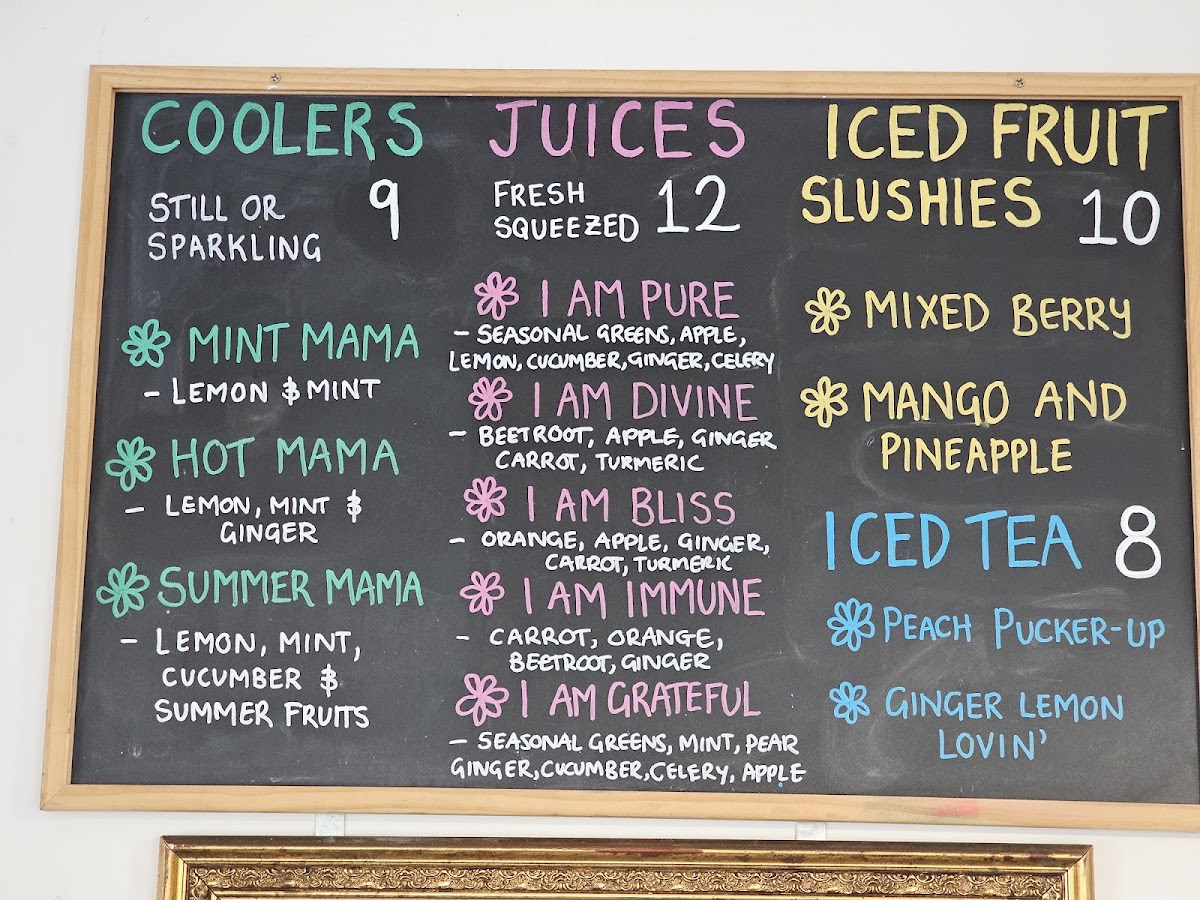 COOLERS
STILL OR 9
SPARKLING
MINT MAMA
- LEMON & MINT
HOT MAMA
- LEMON, MINT &
GINGER
SUMMER MAMA
- LEMON, MINT,
CUCUMBER &
SUMMER FRUITS
JUICES
FRESH 12
SQUEEZED
I AM PURE
- SEASONAL GREENS, APPLE,
LEMON, CUCUMBER, GINGER, CELERY
I AM DIVINE
- BEETROOT, APPLE, GINGER
CARROT, TURMERIC
I AM BLISS
- ORANGE, APPLE, GINGER,
CARROT, TURMERIC
I AM IMMUNE
- CARROT, ORANGE,
BEETROOT, GINGER
I AM GRATEFUL
- SEASONAL GREENS, MINT, PEAR
GINGER, CUCUMBER, CELERY, APPLE
ICED FRUIT
SLUSHIES 10
MIXED BERRY
MANGO AND
PINEAPPLE
ICED TEA 8
PEACH PUCKER-UP
GINGER LEMON
LOVIN'